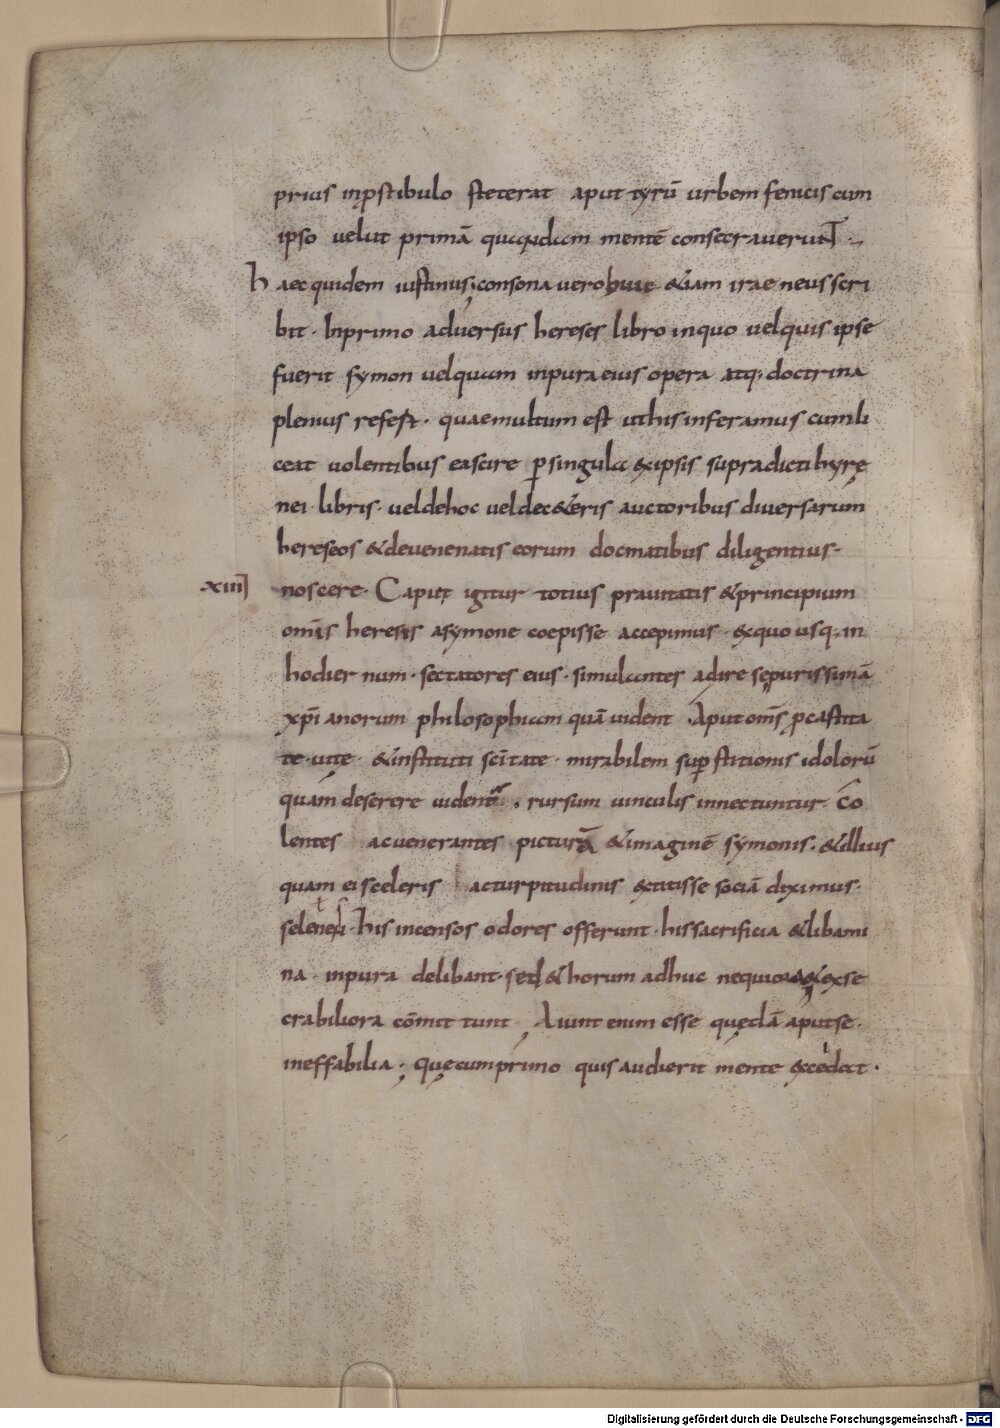 prius inpstibulo steterat aput tyrū urbem fenicis cum
ipso velut primā quandam mentē consecraverunt
haec quidem iustinus; consona vero huic &iam iraeneus scri
bit. Inprimo adversus hereses libro inquo vel quis ipse
fuerit symon vel quam inpura eius opera atq; doctrina
plenius refest. quae multum est ut his inferamus cum li
ceat volentibus ea scire psingula exipsis supradicti hyrę
nei libris. vel de hoc vel dec&eris auctoribus diversarum
hereseos & devenenatis eorum docmatibus diligentius.
xiiii noscere. Caput igitur totius pravitatis & principium
omīs heresis asymone coepisse accepimus. exquo usq; in
hodiernum. sectatores eius. simulantes adire se purissimā
xpīanorum philosophiam quā vident. Aput omīs pcastita
te vitę & instituti scītate. mirabilem supstitionis idolorū
quam deserere videntur. rursum vinculis innectuntur. Co
lentes ac venerantes picturā & imaginē symonis. & illius
quam ei sceleris ac turpitudinis extitisse sociā diximus.
selenes. his incensos odores offerunt. his sacrificia & libami
na inpura delibant. sed & horum adhuc nequiora & exse
crabiliora cōmittunt. Aiunt enim esse quędā aput se.
ineffabilia. quę cum primo quis audierit mente excedat.
Digitalisierung gefördert durch die Deutsche Forschungsgemeinschaft - DFG